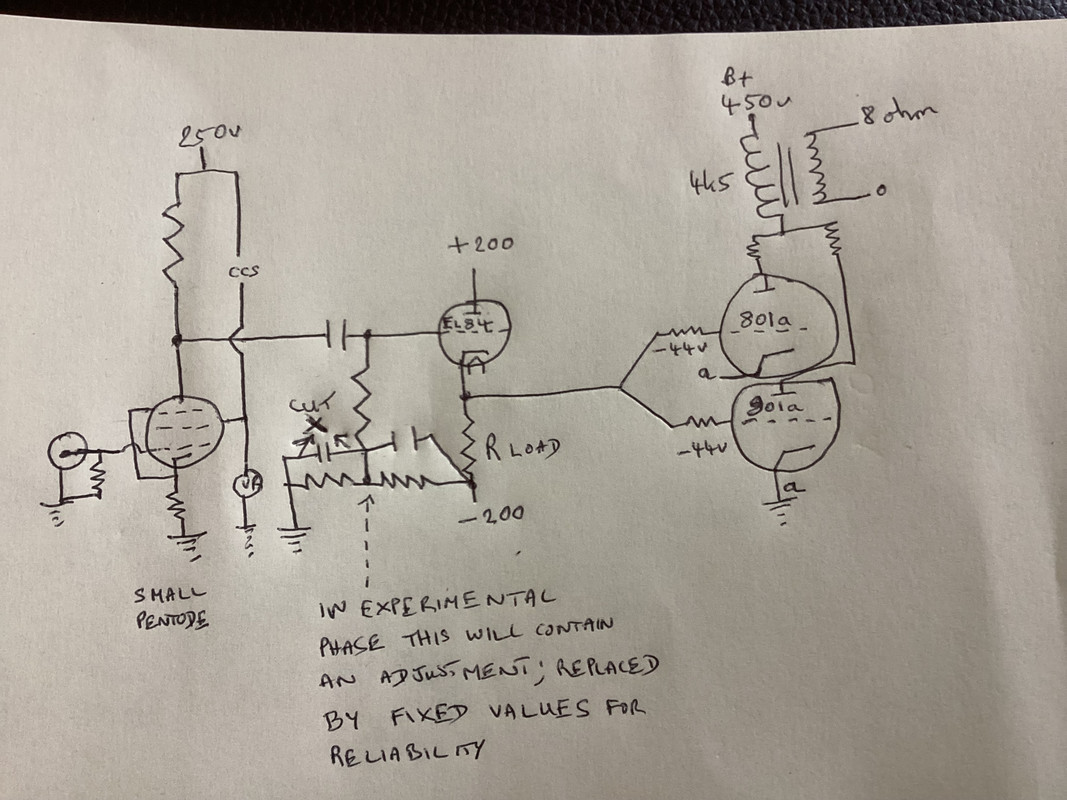 B+
450v
8 ohm
250v
4k5
0
+200
CCS
EL84
801a
-44v
a
CUT
X
801a
R LOAD
-44v
a
VR
-200
SMALL
PENTODE
IN EXPERIMENTAL
PHASE THIS WILL CONTAIN
AN ADJUSTMENT; REPLACED
BY FIXED VALUES FOR
RELIABILITY